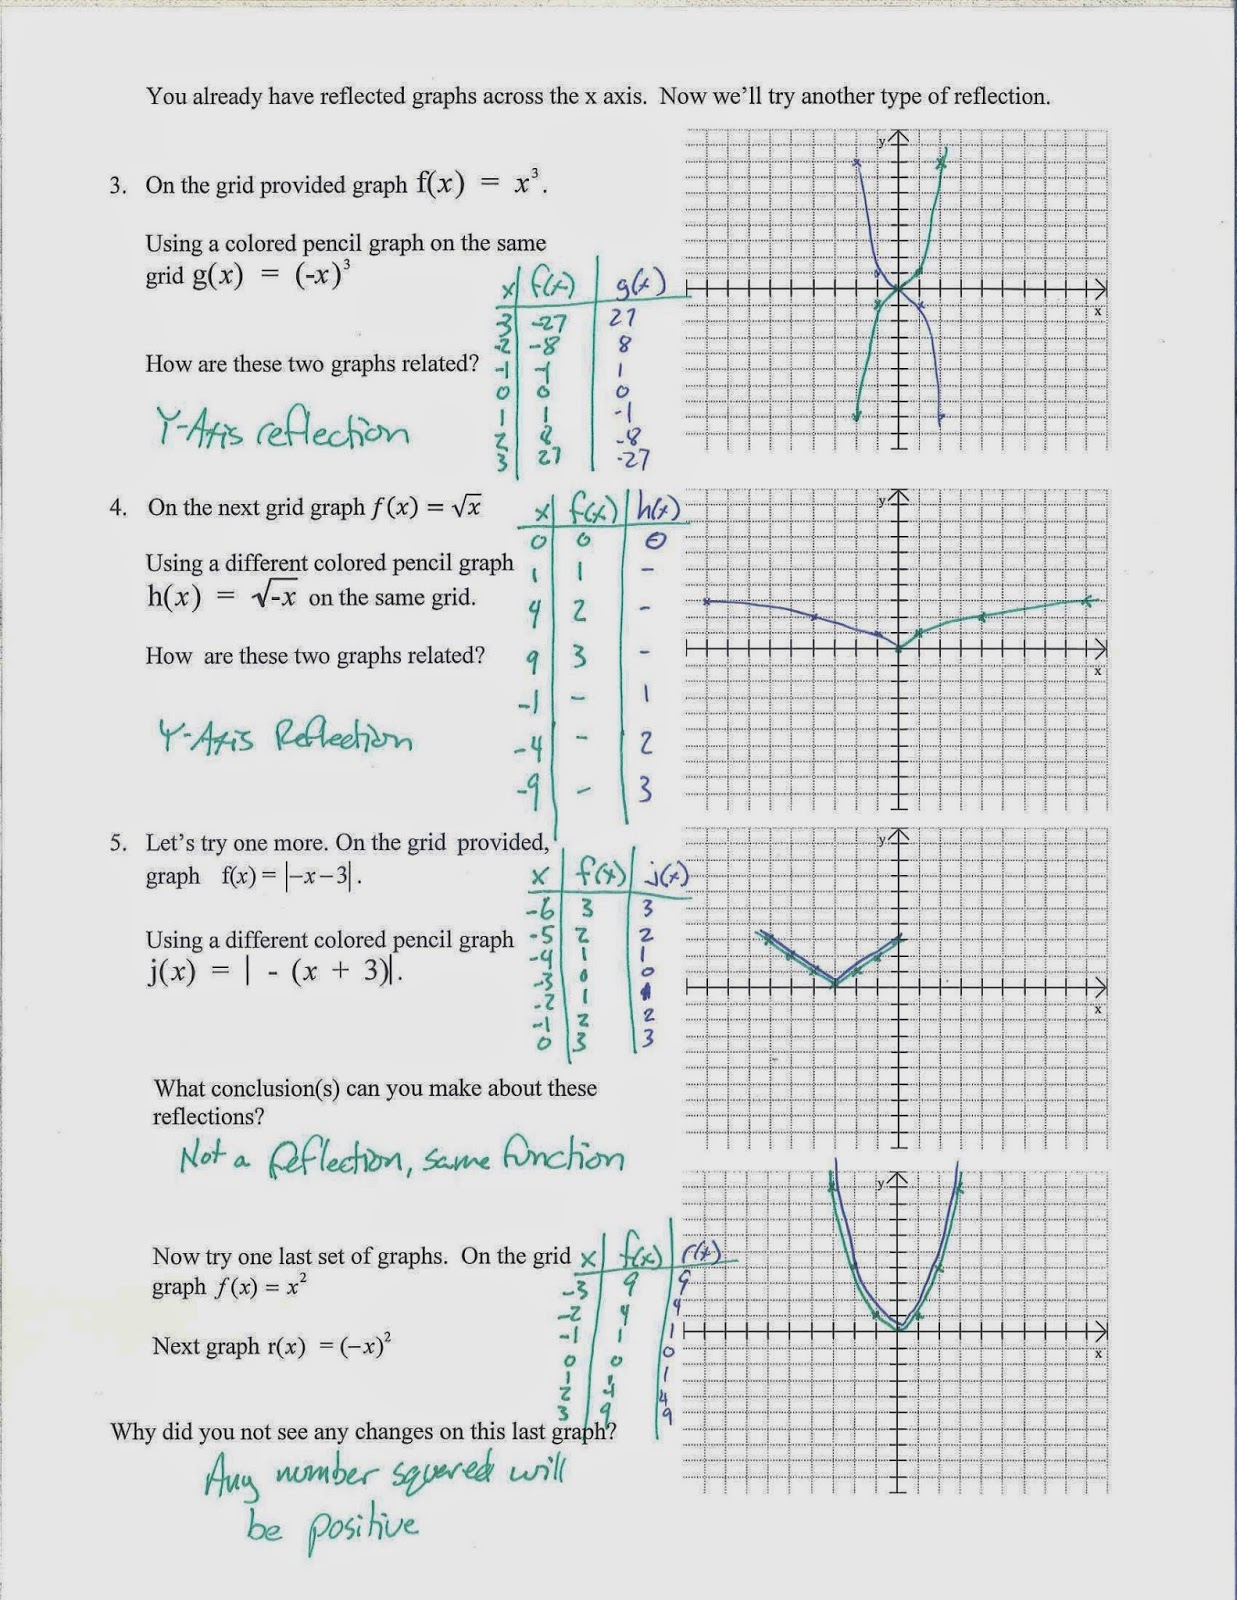 You already have reflected graphs across the x axis. Now we'll try another type of reflection.
y
x
3. On the grid provided graph f(x) = x³.
Using a colored pencil graph on the same
grid g(x) = (-x)³
x f(x) g(x)
3 -27 27
-2 -8 8
-1 -1 1
0 0 0
1 1 -1
2 8 -8
3 27 -27
How are these two graphs related?
Y-Axis reflection
4. On the next grid graph f(x) = √x
Using a different colored pencil graph
h(x) = √-x on the same grid.
How are these two graphs related?
Y-Axis Reflection
x f(x) h(x)
0 0 0
1 1 -
4 2 -
9 3 -
-1 - 1
-4 - 2
-9 - 3
y
x
5. Let's try one more. On the grid provided,
graph f(x) = |-x-3|.
Using a different colored pencil graph
j(x) = | - (x + 3)|.
x f(x) j(x)
-6 3 3
-5 2 2
-4 1 1
-3 0 0
-2 1 1
-1 2 2
0 3 3
y
x
What conclusion(s) can you make about these
reflections?
Not a Reflection, same function
Now try one last set of graphs. On the grid
graph f(x) = x²
Next graph r(x) = (-x)²
x f(x) r(x)
-3 9 9
-2 4 4
-1 1 1
0 0 0
1 1 1
2 4 4
3 9 9
y
x
Why did you not see any changes on this last graph?
Any number squared will
be positive